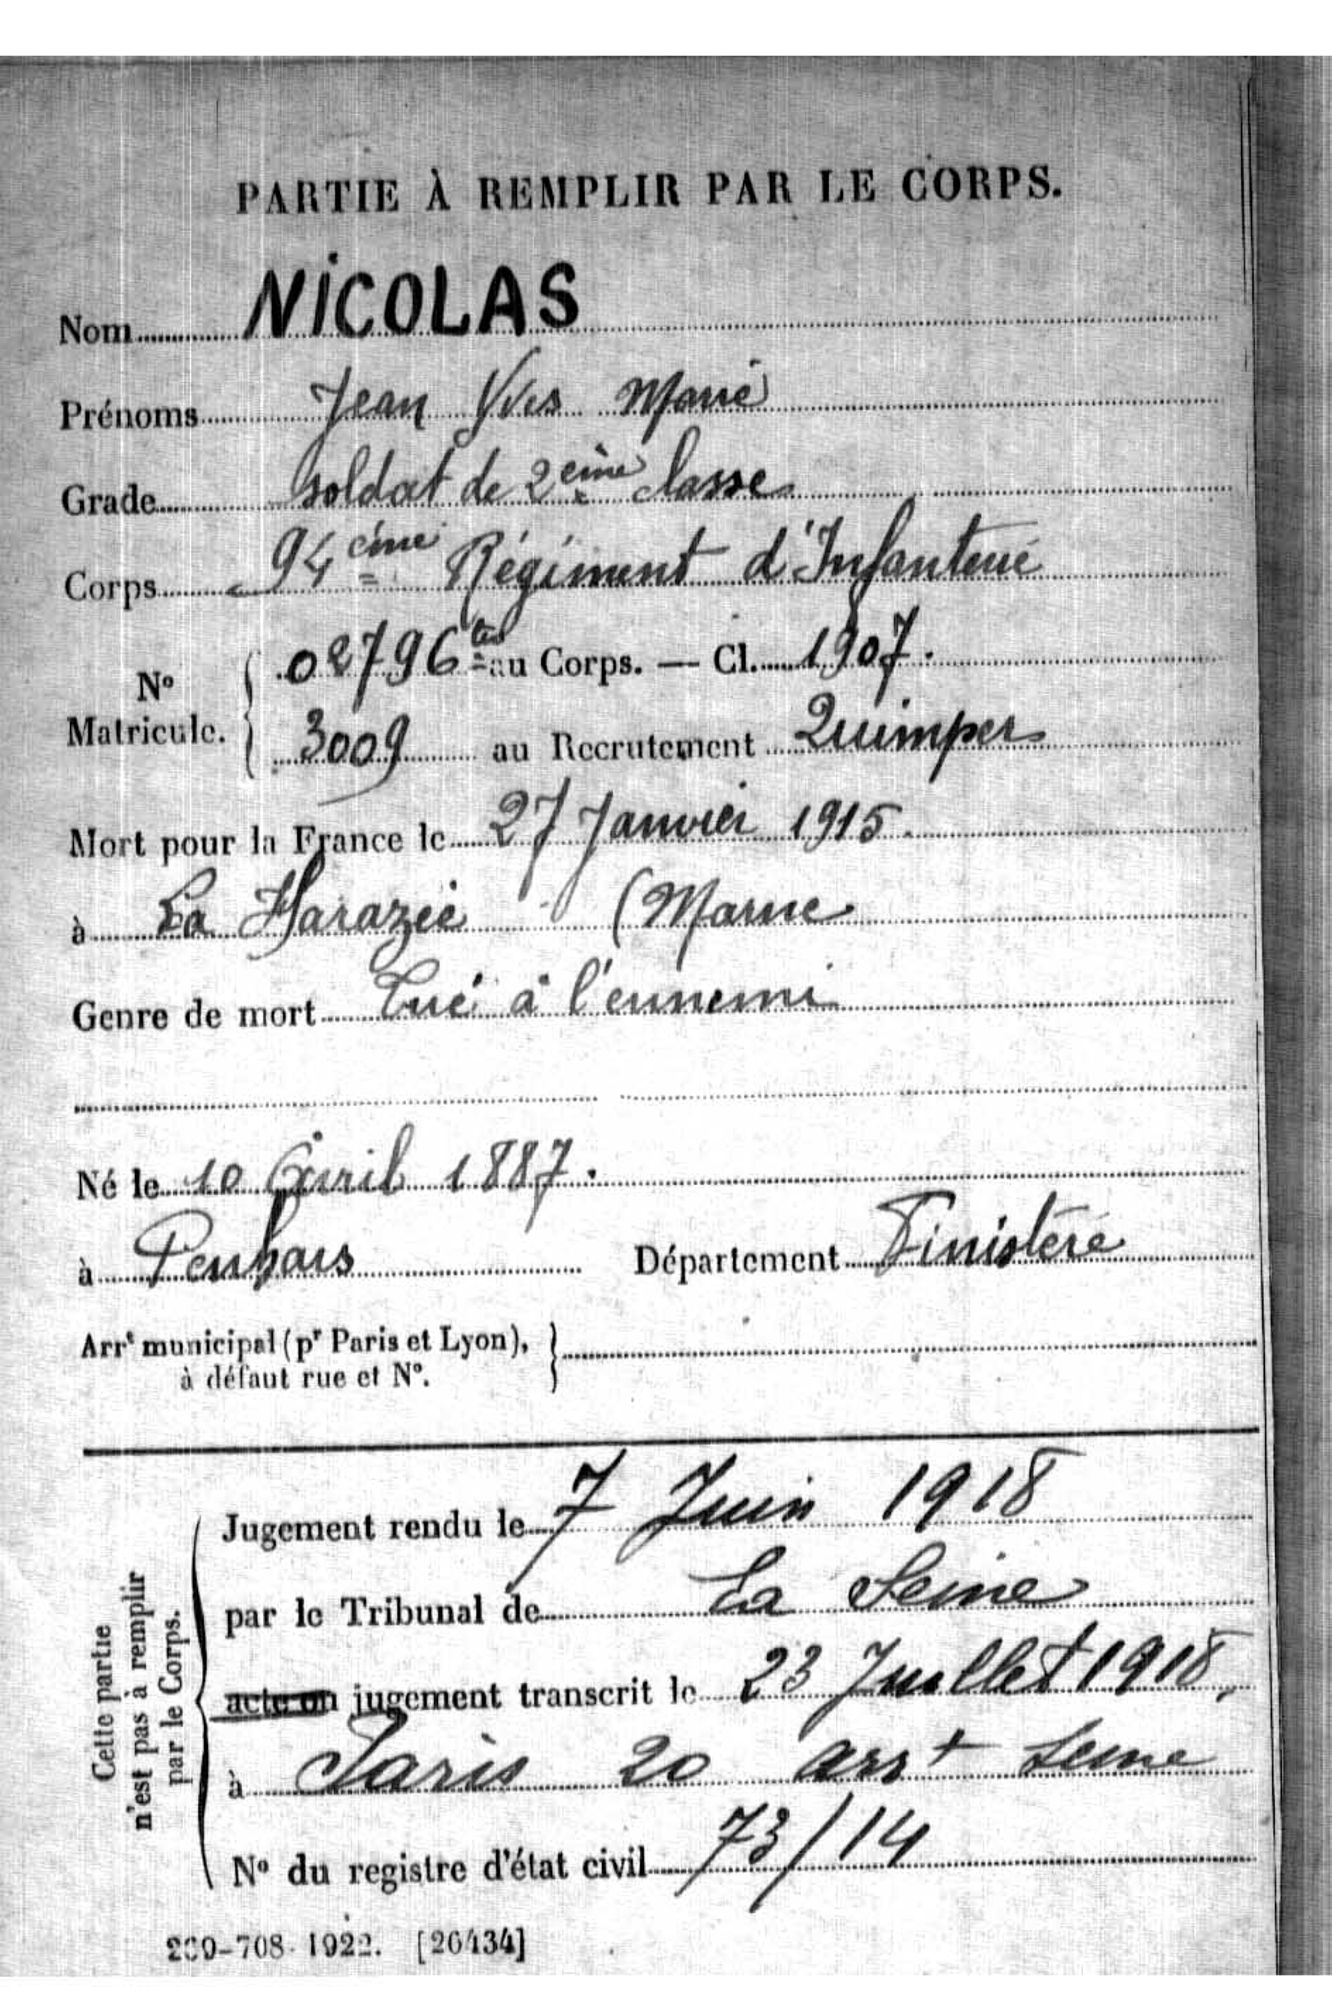 PARTIE À REMPLIR PAR LE CORPS.
Nom NICOLAS
Prénoms Jean Yves Marie
Grade soldat de 2eme classe
Corps 94eme Régiment d'Infanterie
N° Matricule. 02796 au Corps. — Cl. 1907.
3009 au Recrutement Quimper
Mort pour la France le 27 Janvier 1915.
à La Harazée (Marne
Genre de mort Tué à l'ennemi
Né le 10 Avril 1887.
à Penhars Département Finistère
Arrt municipal (pr Paris et Lyon),
à défaut rue et N°.
Cette partie
n'est pas à remplir
par le Corps.
Jugement rendu le 7 Juin 1918
par le Tribunal de La Seine
acte ou jugement transcrit le 23 Juillet 1918,
à Paris 20 arrt Seine
N° du registre d'état civil 73/14
-708. 1922. [26434]